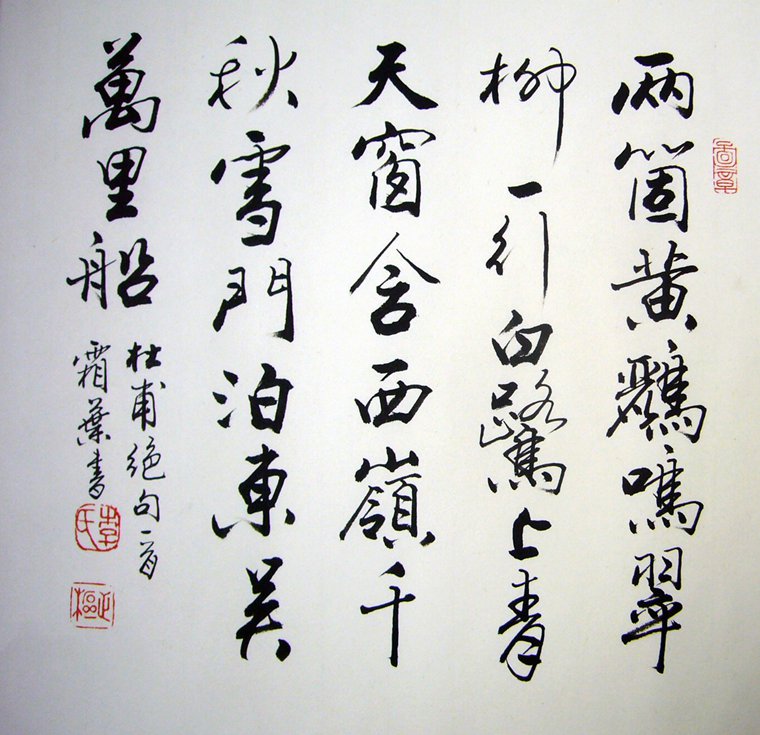 兩箇黄鸝鳴翠
柳一行白鷺上青
天窗含西嶺千
秋雪門泊東吳
萬里船
杜甫絕句一首
霜葉書
李氏